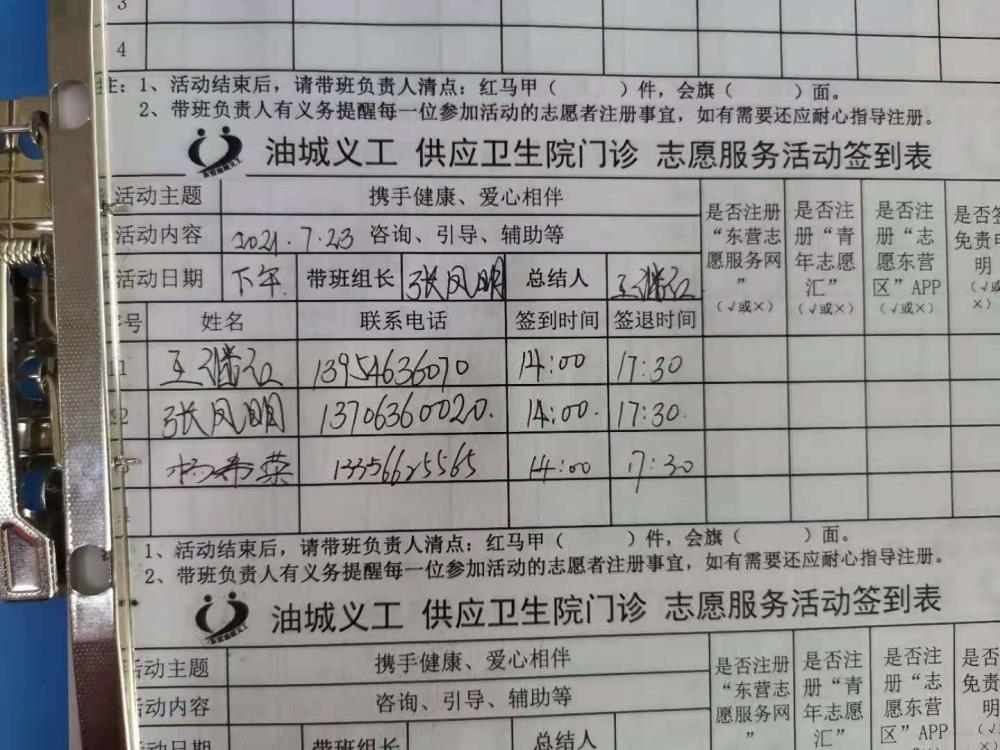 3
4
注：1、活动结束后，请带班负责人清点：红马甲（ ）件，会旗（ ）面。
2、带班负责人有义务提醒每一位参加活动的志愿者注册事宜，如有需要还应耐心指导注册。
油城义工 供应卫生院门诊 志愿服务活动签到表
活动主题 携手健康、爱心相伴 是否注册“东营志愿服务网”（√或×） 是否注册“青年志愿汇”（√或×） 是否注册“志愿东营区”APP（√或×） 是否签免责 明（√或×）
活动内容 2021.7.23 咨询、引导、辅助等
活动日期 下午 带班组长 张凤明 总结人
序号 姓名 联系电话 签到时间 签退时间
1 13954636070 14:00 17:30
2 张凤明 13706360020. 14:00. 17:30.
杨希荣 13356625565 14:00 17:30
1、活动结束后，请带班负责人清点：红马甲（ ）件，会旗（ ）面。
2、带班负责人有义务提醒每一位参加活动的志愿者注册事宜，如有需要还应耐心指导注册。
油城义工 供应卫生院门诊 志愿服务活动签到表
活动主题 携手健康、爱心相伴 是否注册“东营志愿服务网” 是否注册“青年志愿 是否注册“志愿东营区”APP 是否 免责 明
活动内容 咨询、引导、辅助等
活动日期 带班组长 总结人